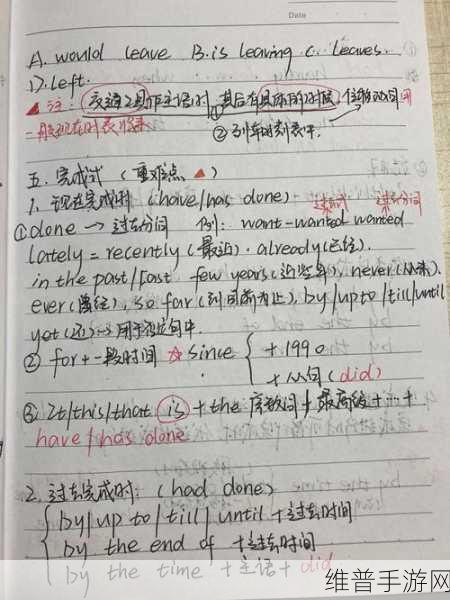 Date
A. would leave B. is leaving C. leaves.
D. left.
▲注: 交通工具作主语时, 其后有具体的时间, 位移动词用
一般现在时表将来 ②列车时刻表
五. 完成式 (重难点▲)
1. 现在完成时 (have/has done) 过去式 过去分词
①done → 过去分词 例: want-wanted wanted
lately = recently (最近). already (已经).
in the past/last few years (近些年), never (从未).
ever (曾经), so far (到目前为止), by/up to/till/until
yet (还) → 用于否定句中.
② for + 一段时间 ☆ since { +1990
+从句 (did)
③ It/this/that is + the 序数词 + 最高级 + … +
have/has done
2. 过去完成时: (had done)
by/up to/till/until +过去时间
by the end of +过去时间
by the time +主语+ did
维普手游网